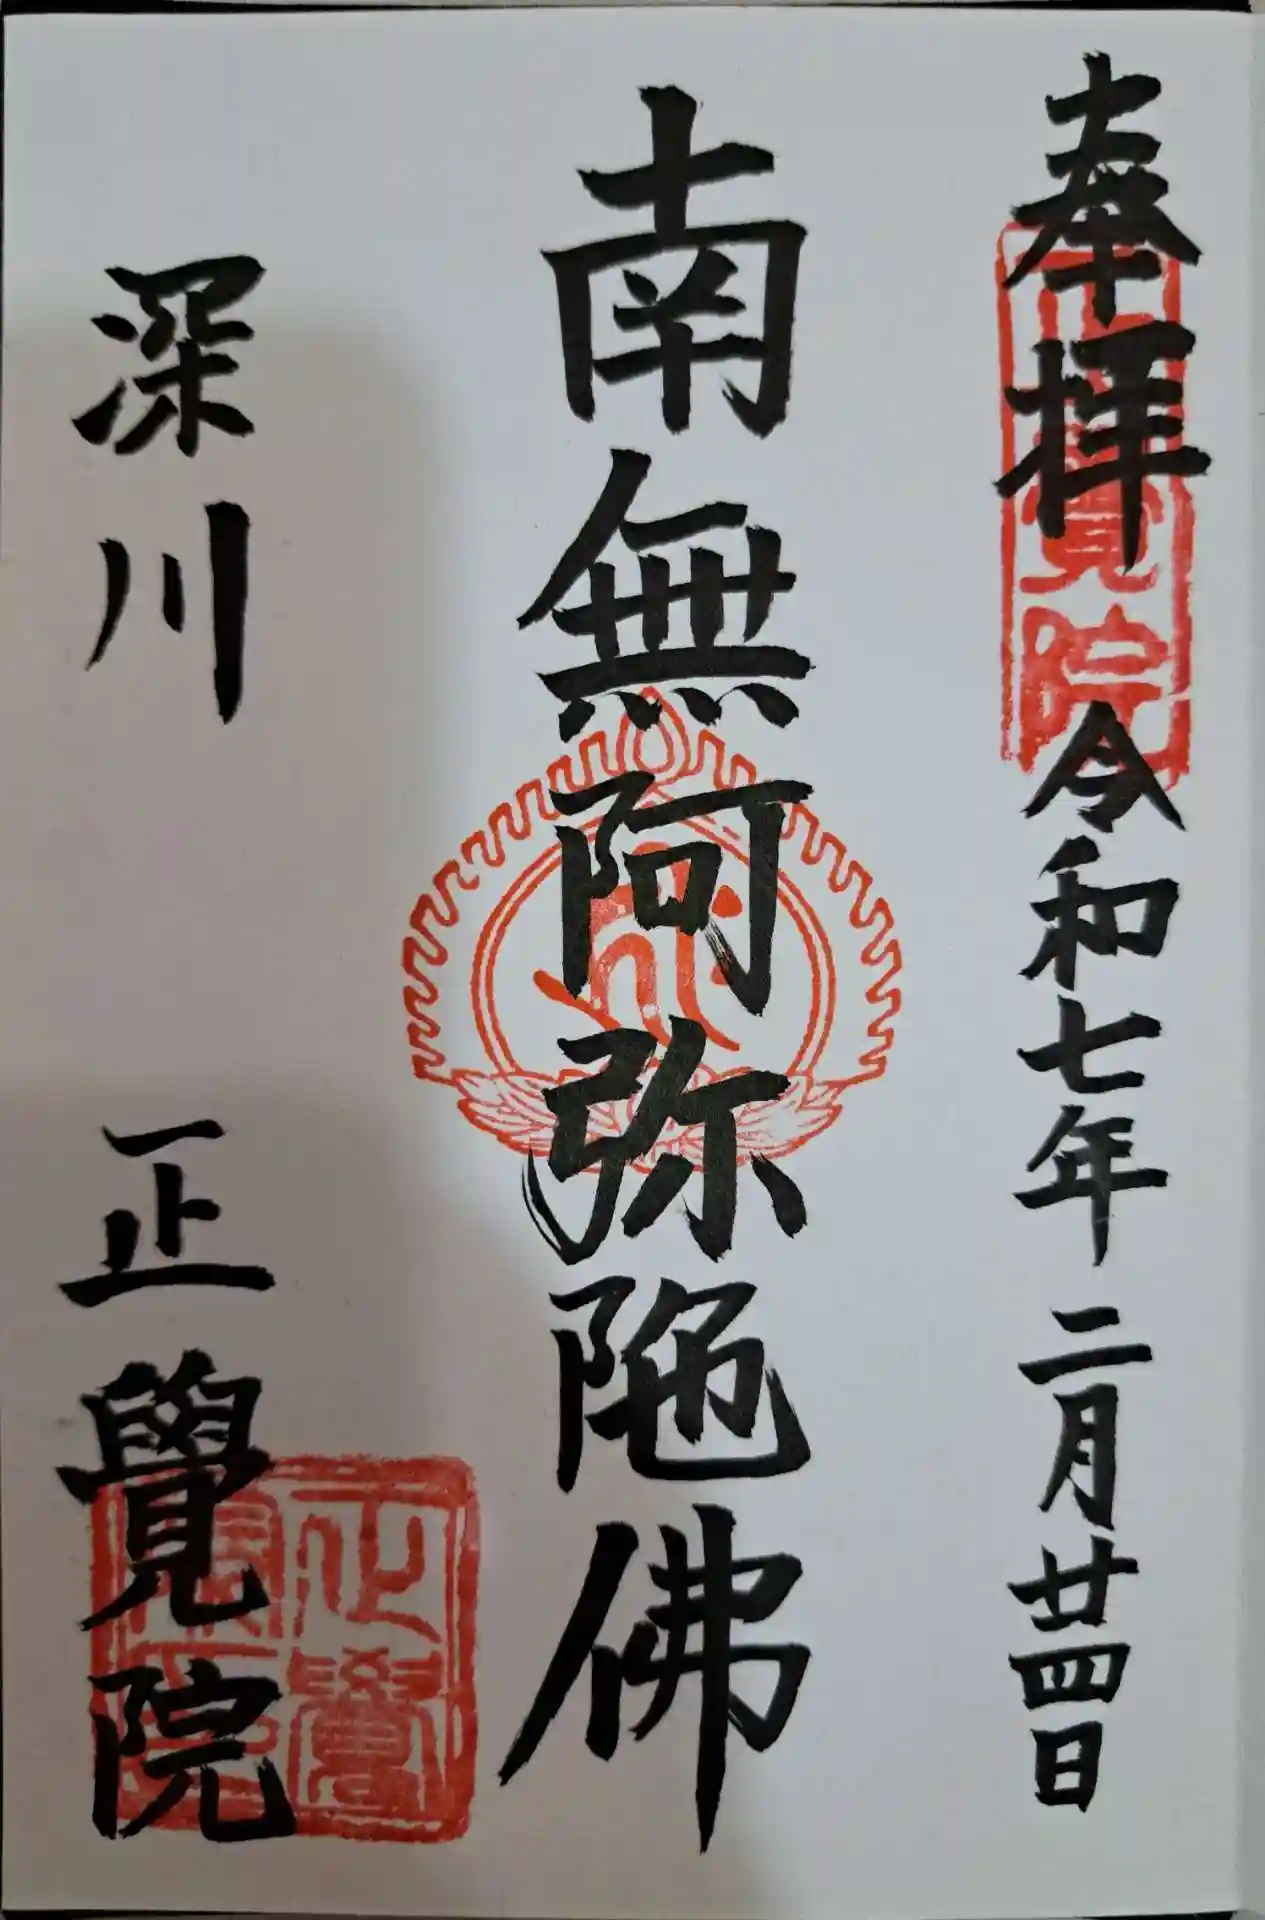 奉拝 令和七年二月廿四日
南無阿弥陀佛
深川 正覺院
正覺院
正覺